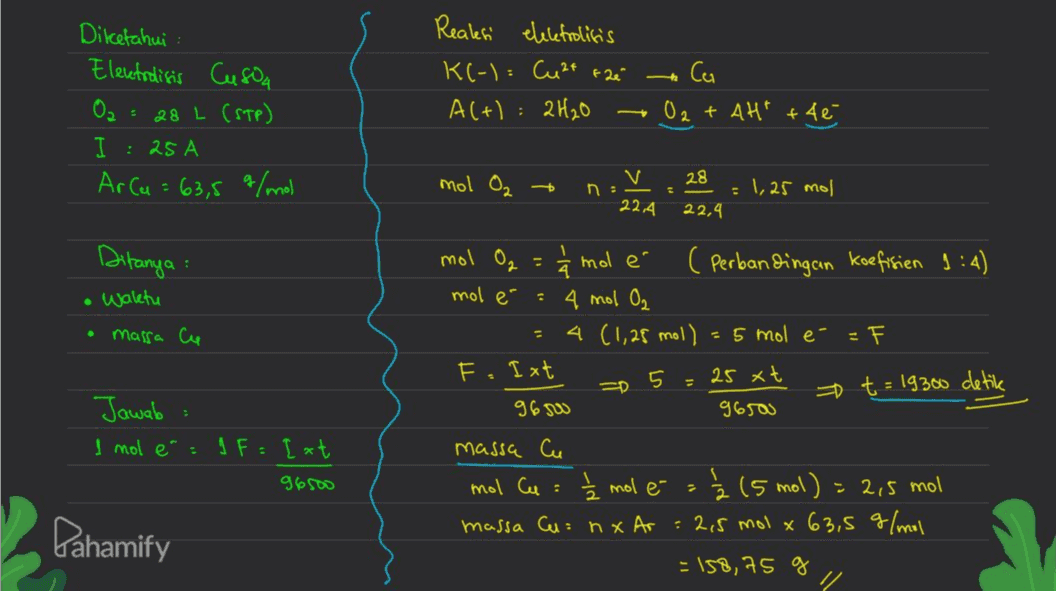 Diketahui :
Elektrolisis CuSO4
O2 = 28 L (STP)
I : 25 A
Ar Cu = 63,5 g/mol
Ditanya :
• Waktu
• massa Cu
Jawab :
1 mol e⁻ = 1 F = I x t / 96500
Reaksi elektrolisis
K(-) : Cu²⁺ + 2e⁻ → Cu
A(+) : 2H2O → O2 + 4H⁺ + 4e⁻
mol O2 → n = V / 22,4 = 28 / 22,4 = 1,25 mol
mol O2 = 1/4 mol e⁻ ( Perbandingan koefisien 1 : 4)
mol e⁻ = 4 mol O2
= 4 (1,25 mol) = 5 mol e⁻ = F
F = I x t / 96500 ⇒ 5 = 25 x t / 96500 ⇒ t = 19300 detik
massa Cu
mol Cu = 1/2 mol e⁻ = 1/2 (5 mol) = 2,5 mol
massa Cu = n x Ar = 2,5 mol x 63,5 g/mol
= 158,75 g //
Pahamify